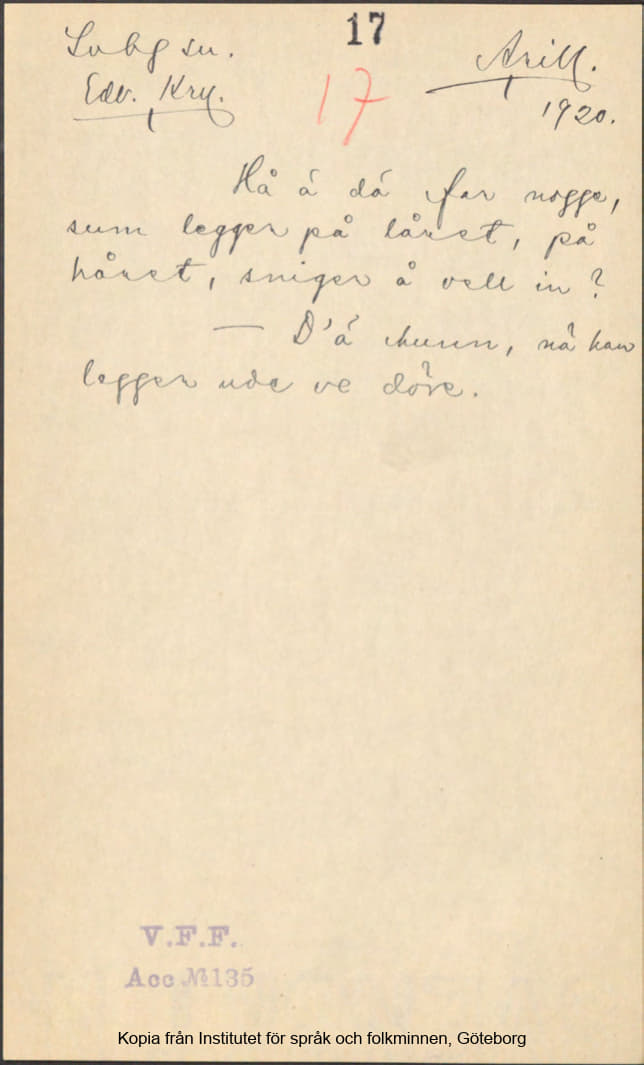 17
Svbg sn.
Edv. Kry.
Arill.
17
1920.
Hå ä dä far nogge,
sum legger på låret, på
håret, sniger å vell in?
— D'ä hunn, nä han
legger ude ve döre.
V.F.F.
Acc №135
Kopia från Institutet för språk och folkminnen, Göteborg